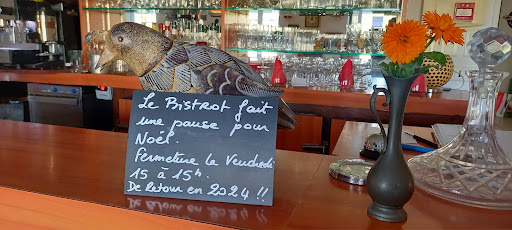 Le Bistrot fait
une pause pour
Noël.
Fermeture le Vendredi
15 à 15h.
De retour en 2024 !!